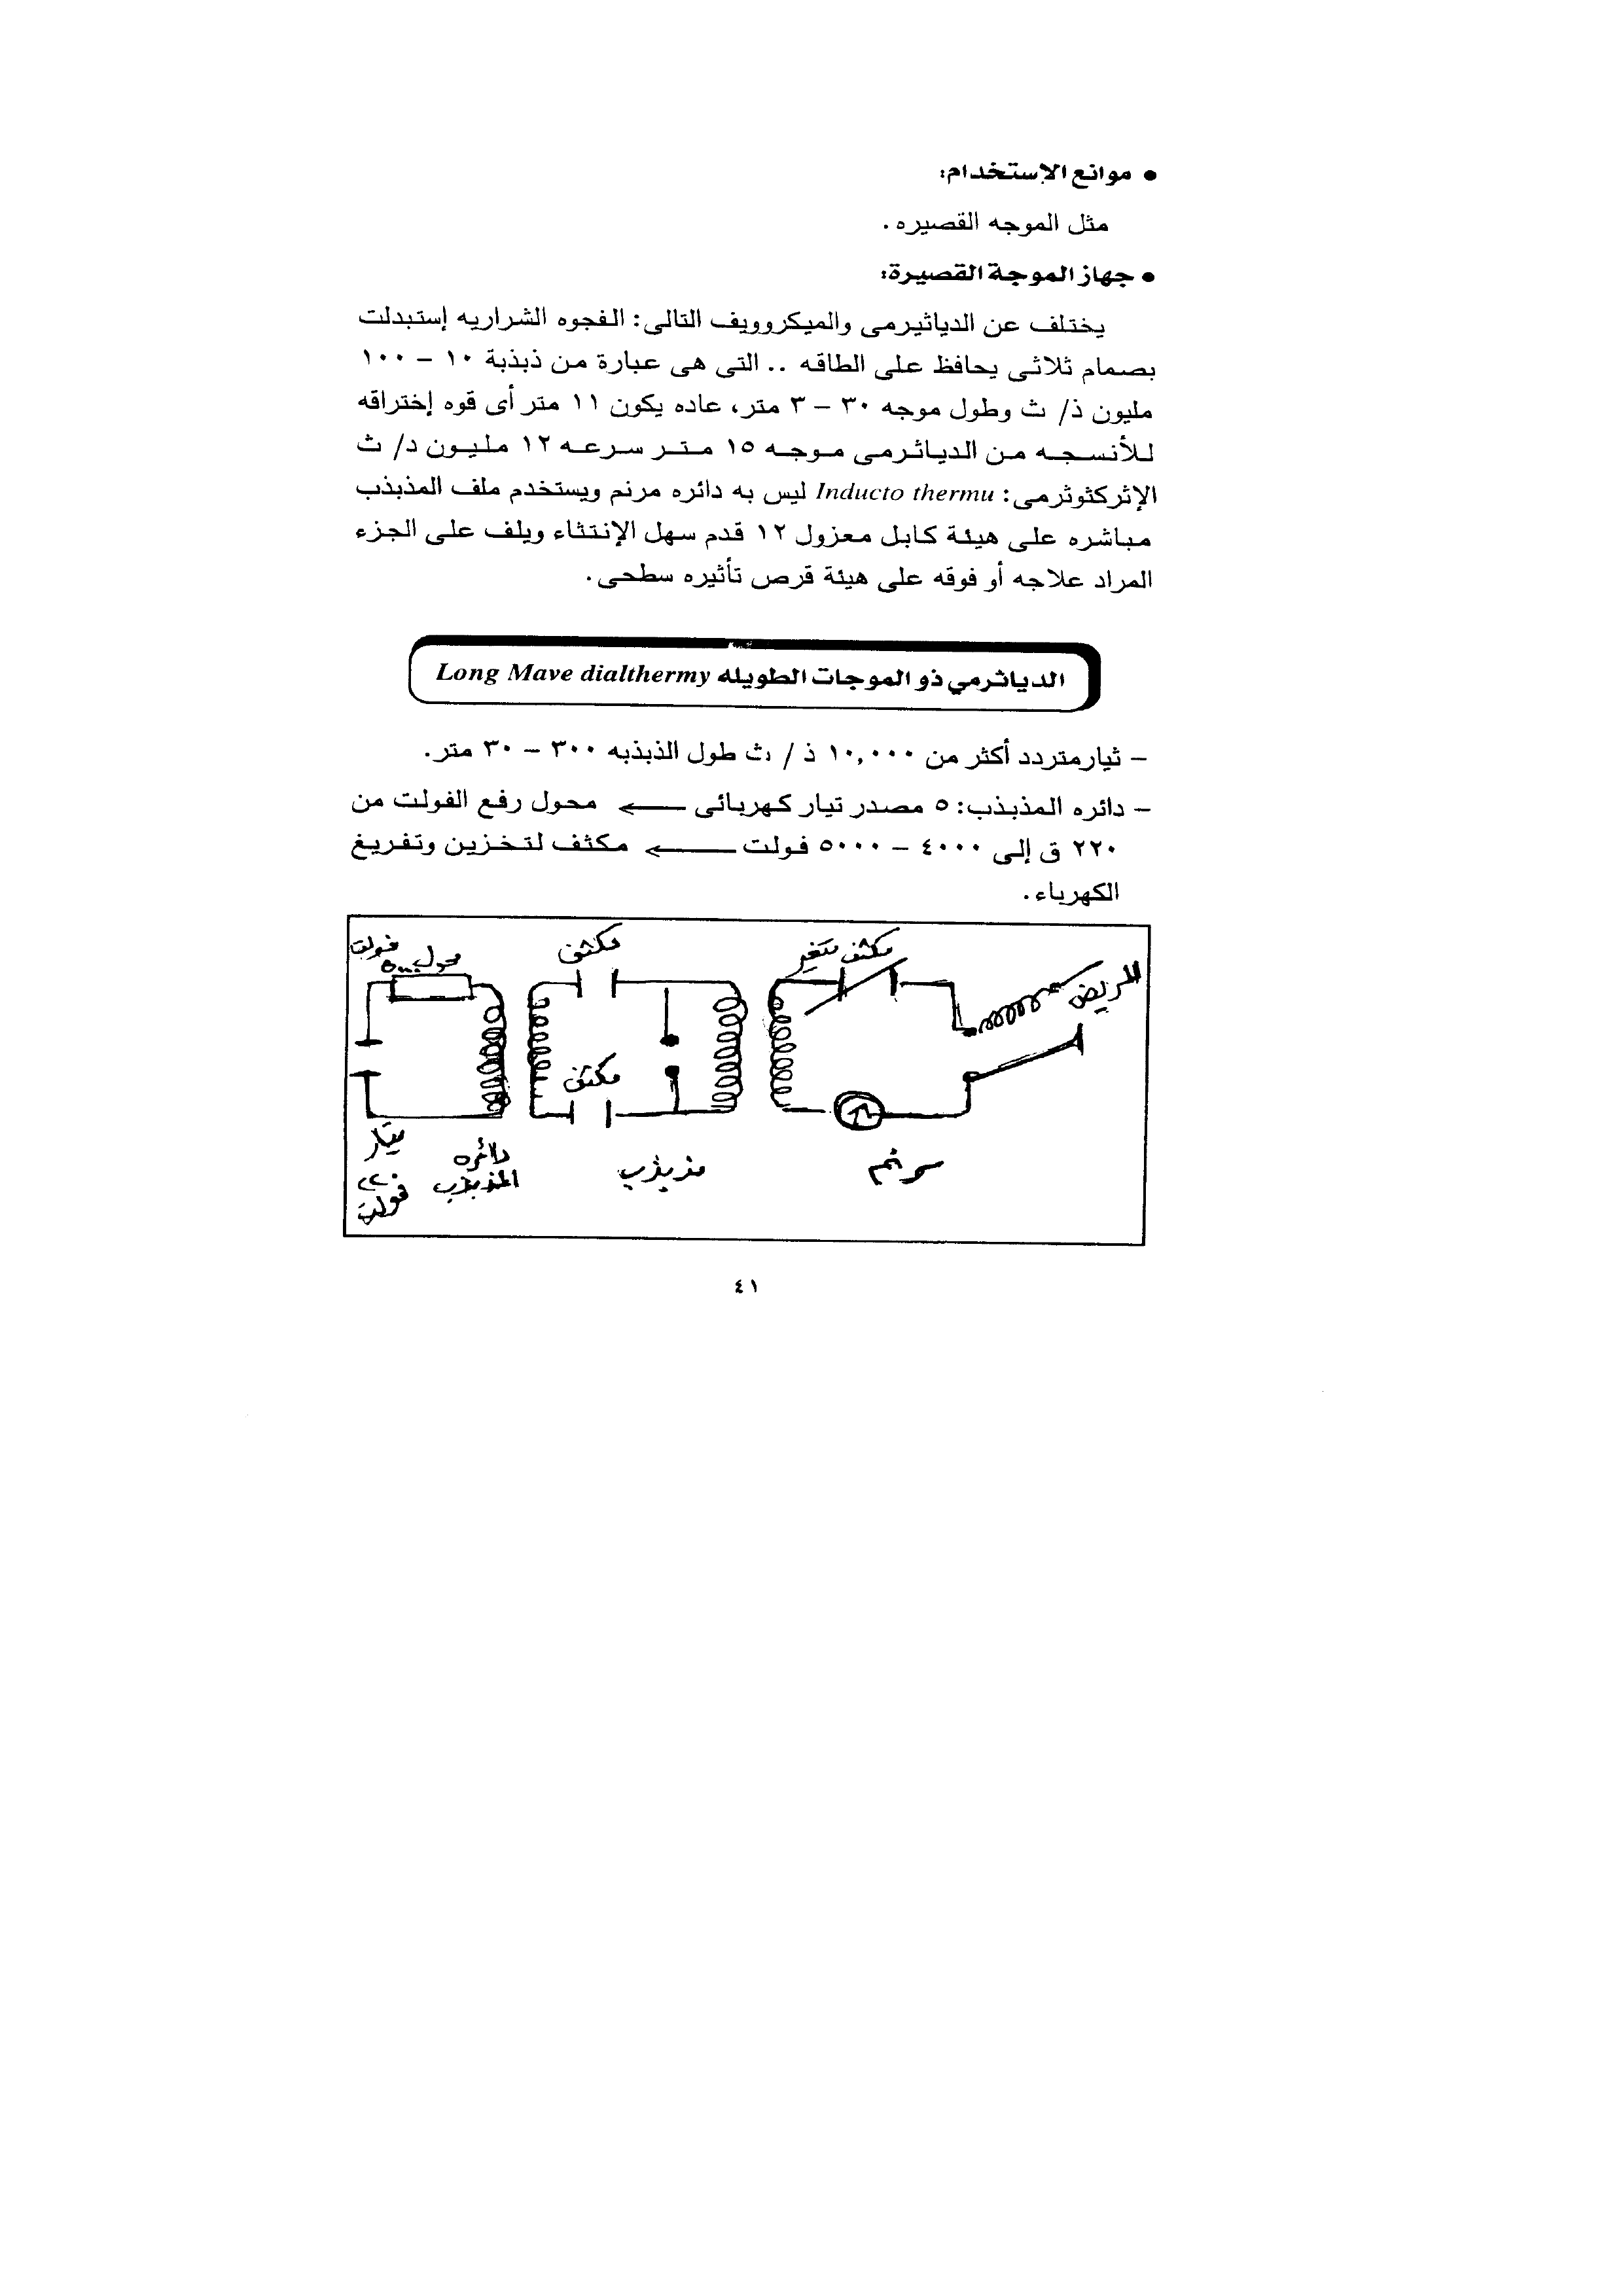 • موانع الإستخدام:
مثل الموجه القصيره .
• جهاز الموجة القصيرة:
يختلف عن الدياثيرمى والميكروويف التالى: الفجوه الشراريه إستبدلت
بصمام ثلاثى يحافظ على الطاقه .. التى هى عبارة من ذبذبة ١٠ – ١٠٠
مليون ذ/ ث وطول موجه ٣٠ – ٣ متر، عاده يكون ١١ متر أى قوه إختراقه
للأنسجه من الدياثرمى موجه ١٥ متر سرعه ١٢ مليون د/ ث
الإثركثوثرمى: Inducto thermu ليس به دائره مرنم ويستخدم ملف المذبذب
مباشره على هيئة كابل معزول ١٢ قدم سهل الإنتثاء ويلف على الجزء
المراد علاجه أو فوقه على هيئة قرص تأثيره سطحى.
الدياثرمي ذو الموجات الطويله Long Mave dialthermy
– ثيارمتردد أكثر من ١٠,٠٠٠ ذ / ث طول الذبذبه ٣٠٠ – ٣٠ متر.
– دائره المذبذب: ٥ مصدر تيار كهربائى ← محول رفع الفولت من
٢٢٠ ق إلى ٤٠٠٠ – ٥٠٠٠ فولت ← مكثف لتخزين وتفريغ
الكهرباء.
المريض
مكثف متغير
مكثف
محول ٥٠٠٠ فولت
مكثف
مرنم
مذبذب
دائره
المذبذب
تيار
٢٢٠
فولت
٤١